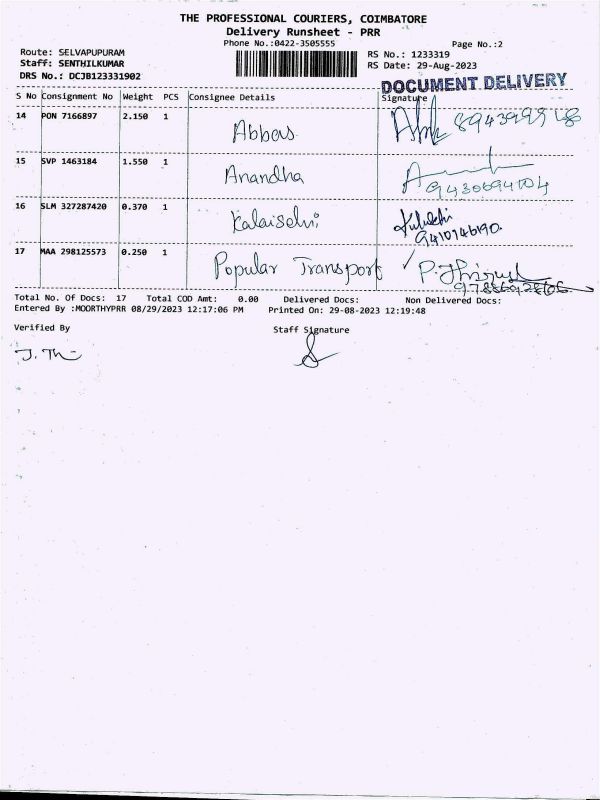 THE PROFESSIONAL COURIERS, COIMBATORE
Delivery Runsheet - PRR
Phone No.:0422-3505555
Page No.:2
Route: SELVAPUPURAM
Staff: SENTHILKUMAR
DRS No.: DCJB123331902
RS No.: 1233319
RS Date: 29-Aug-2023
DOCUMENT DELIVERY
S No Consignment No Weight PCS Consignee Details Signature
14 PON 7166897 2.150 1 Abbas
15 SVP 1463184 1.550 1 Anandha
16 SLM 327287420 0.370 1 Kalaiselvi
17 MAA 298125573 0.250 1 Popular Transport
Total No. Of Docs: 17 Total COD Amt: 0.00 Delivered Docs: Non Delivered Docs:
Entered By :MOORTHYPRR 08/29/2023 12:17:06 PM Printed On: 29-08-2023 12:19:48
Verified By Staff Signature